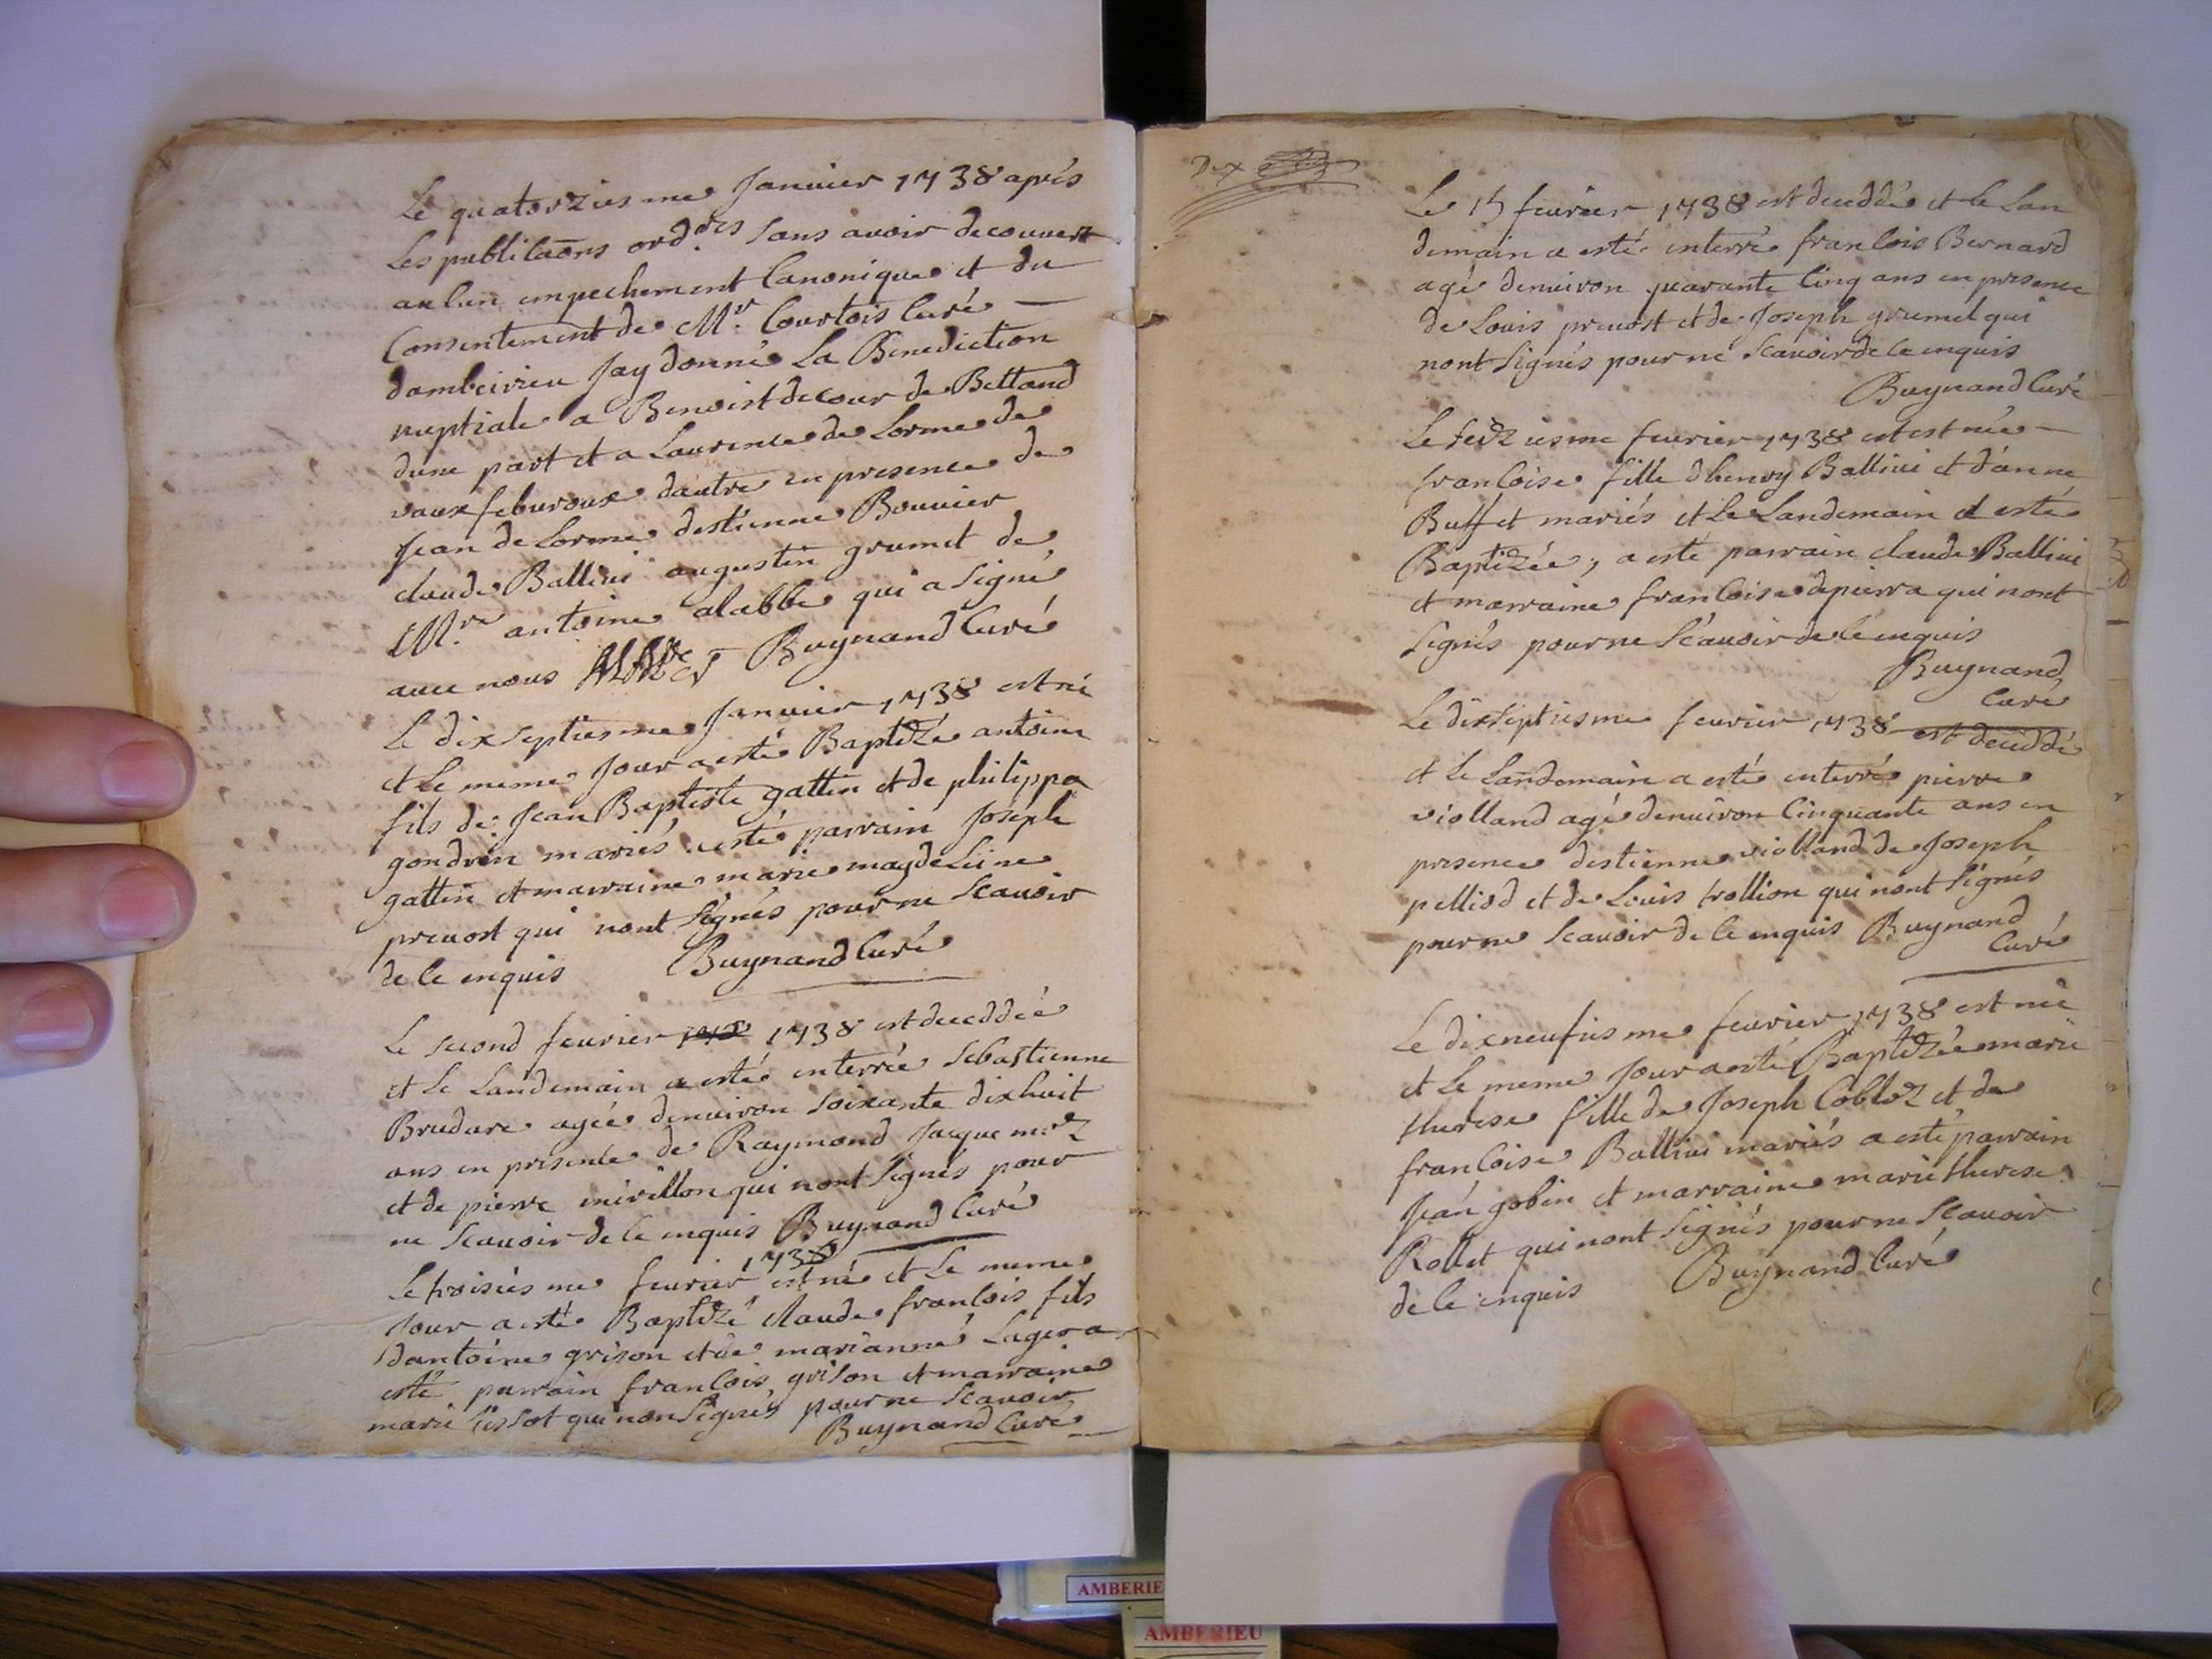 Le quatorziesme Januier 1738 après
Les publicaõns ord.res sans auoir decouuert
aucun empechement Canonique et du
Consentement de Mr. Courtois Curé
dambeirieu Jay donné La Benediction
nuptiale a Benoist decour de Bettand
dune part et a Laurence de Lorme de
vaux feburoux dautre en presence de
Jean de Lorme destienne Bouuier
claude Balliui augustin grumet de
Mre antoine alabbe qui a signé
auec nous Buynand Curé
Le dixseptiesme Januier 1738 est né
et Le meme Jour a esté Baptizé antoine
fils de Jean Baptiste gattin et de philippa
gondrin mariés a esté parrain Joseph
gattin et marraine marie magdeleine
preuost qui nont signés pour ne scauoir
de ce enquis Buynand Curé
Le second feurier 1738 est deceddée
et Le Landemain a esté enterrée sebastienne
Brudare agée denuiron soixante dixhuit
ans en presence de Raymond Jacquemoz
et de pierre mirillon qui nont signés pour
ne scauoir de ce enquis Buynand Curé
1738
Le troisiesme feurier est né et Le meme
Jour a esté Baptizé claude francois fils
dantoine grison et de marianne Lager a
esté parrain francois grison et marraine
marie tissot qui non signés pour ne scauoir
Buynand Curé
Dix
Le 15 feurier 1738 est deceddé et le Lan
demain a esté enterré francois Bernard
agé denuiron quarante Cinq ans en presence
de Louis preuost et de Joseph grumel qui
nont signés pour ne scauoir de ce enquis
Buynand Curé
Le seiziesme feurier 1738 est née
francoise fille dhenry Balliui et d'anne
Buffet mariés et Le Landemain a esté
Baptizée, a esté parrain claude Balliui
et marraine francoise depierra qui nont
signés pour ne scauoir de ce enquis
Buynand
Curé
Le dixseptiesme feurier 1738 est deceddé
et Le Landemain a esté enterré pierre
violland agé denuiron Cinquante ans en
presence destienne violland de Joseph
pelliod et de Louis trollion qui nont signés
pour ne scauoir de ce enquis Buynand
Curé
Le dixneufiesme feurier 1738 est née
et Le meme Jour a esté Baptizée marie
therese fille de Joseph Cobloz et de
francoise Balliui mariés a esté parrain
Jean gobin et marraine marie therese
Rollet qui nont signés pour ne scauoir
de ce enquis Buynand Curé
AMBERIE
AMBERIEU